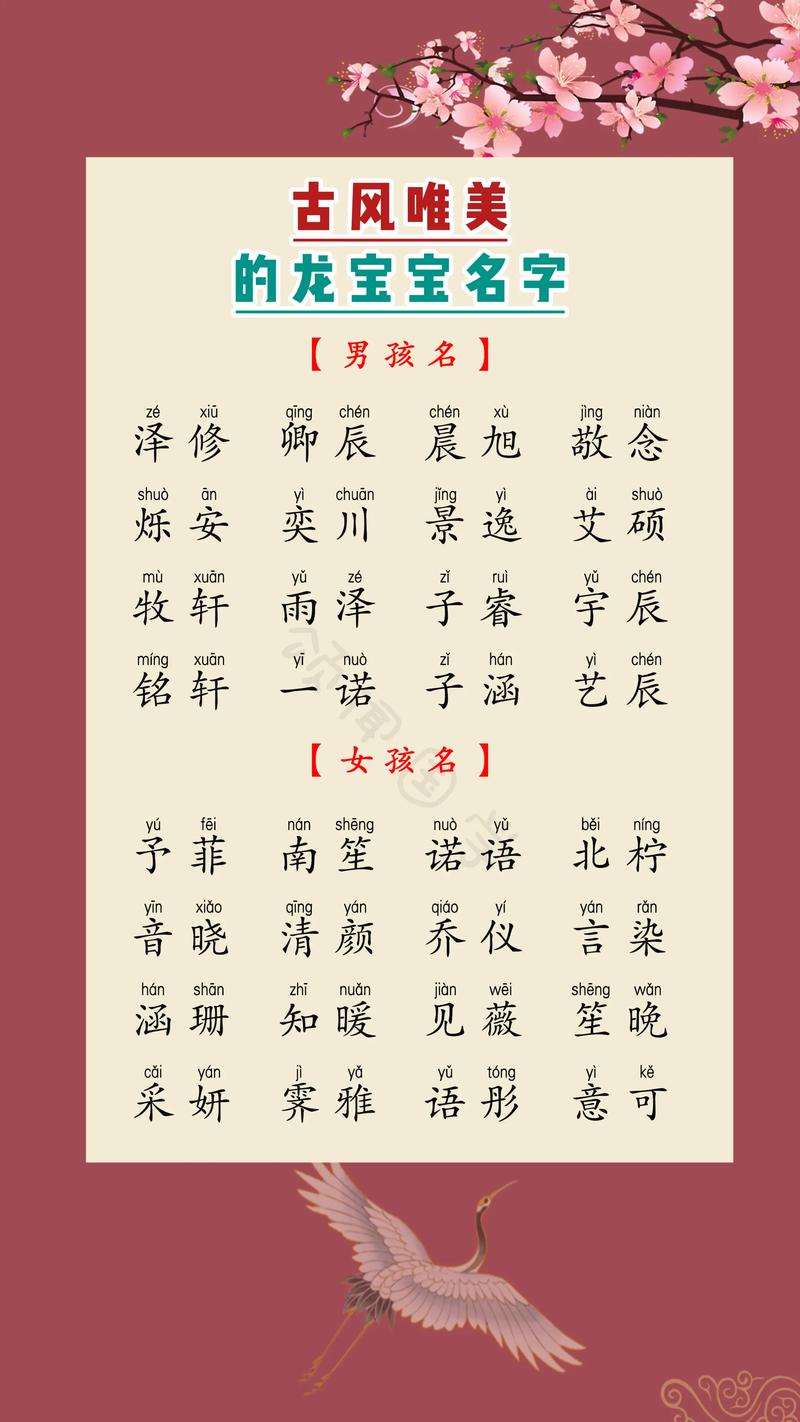 古风唯美
的龙宝宝名字
【男孩名】
zé xiū qīng chén chén xù jìng niàn
泽修 卿辰 晨旭 敬念
shuò ān yì chuān jǐng yì ài shuò
烁安 奕川 景逸 艾硕
mù xuān yǔ zé zǐ ruì yǔ chén
牧轩 雨泽 子睿 宇辰
míng xuān yī nuò zǐ hán yì chén
铭轩 一诺 子涵 艺辰
【女孩名】
yú fēi nán shēng nuò yǔ běi níng
予菲 南笙 诺语 北柠
yīn xiǎo qīng yán qiáo yí yán rǎn
音晓 清颜 乔仪 言染
hán shān zhī nuǎn jiàn wēi shēng wǎn
涵珊 知暖 见薇 笙晚
cǎi yán jì yǎ yǔ tóng yì kě
采妍 霁雅 语彤 意可